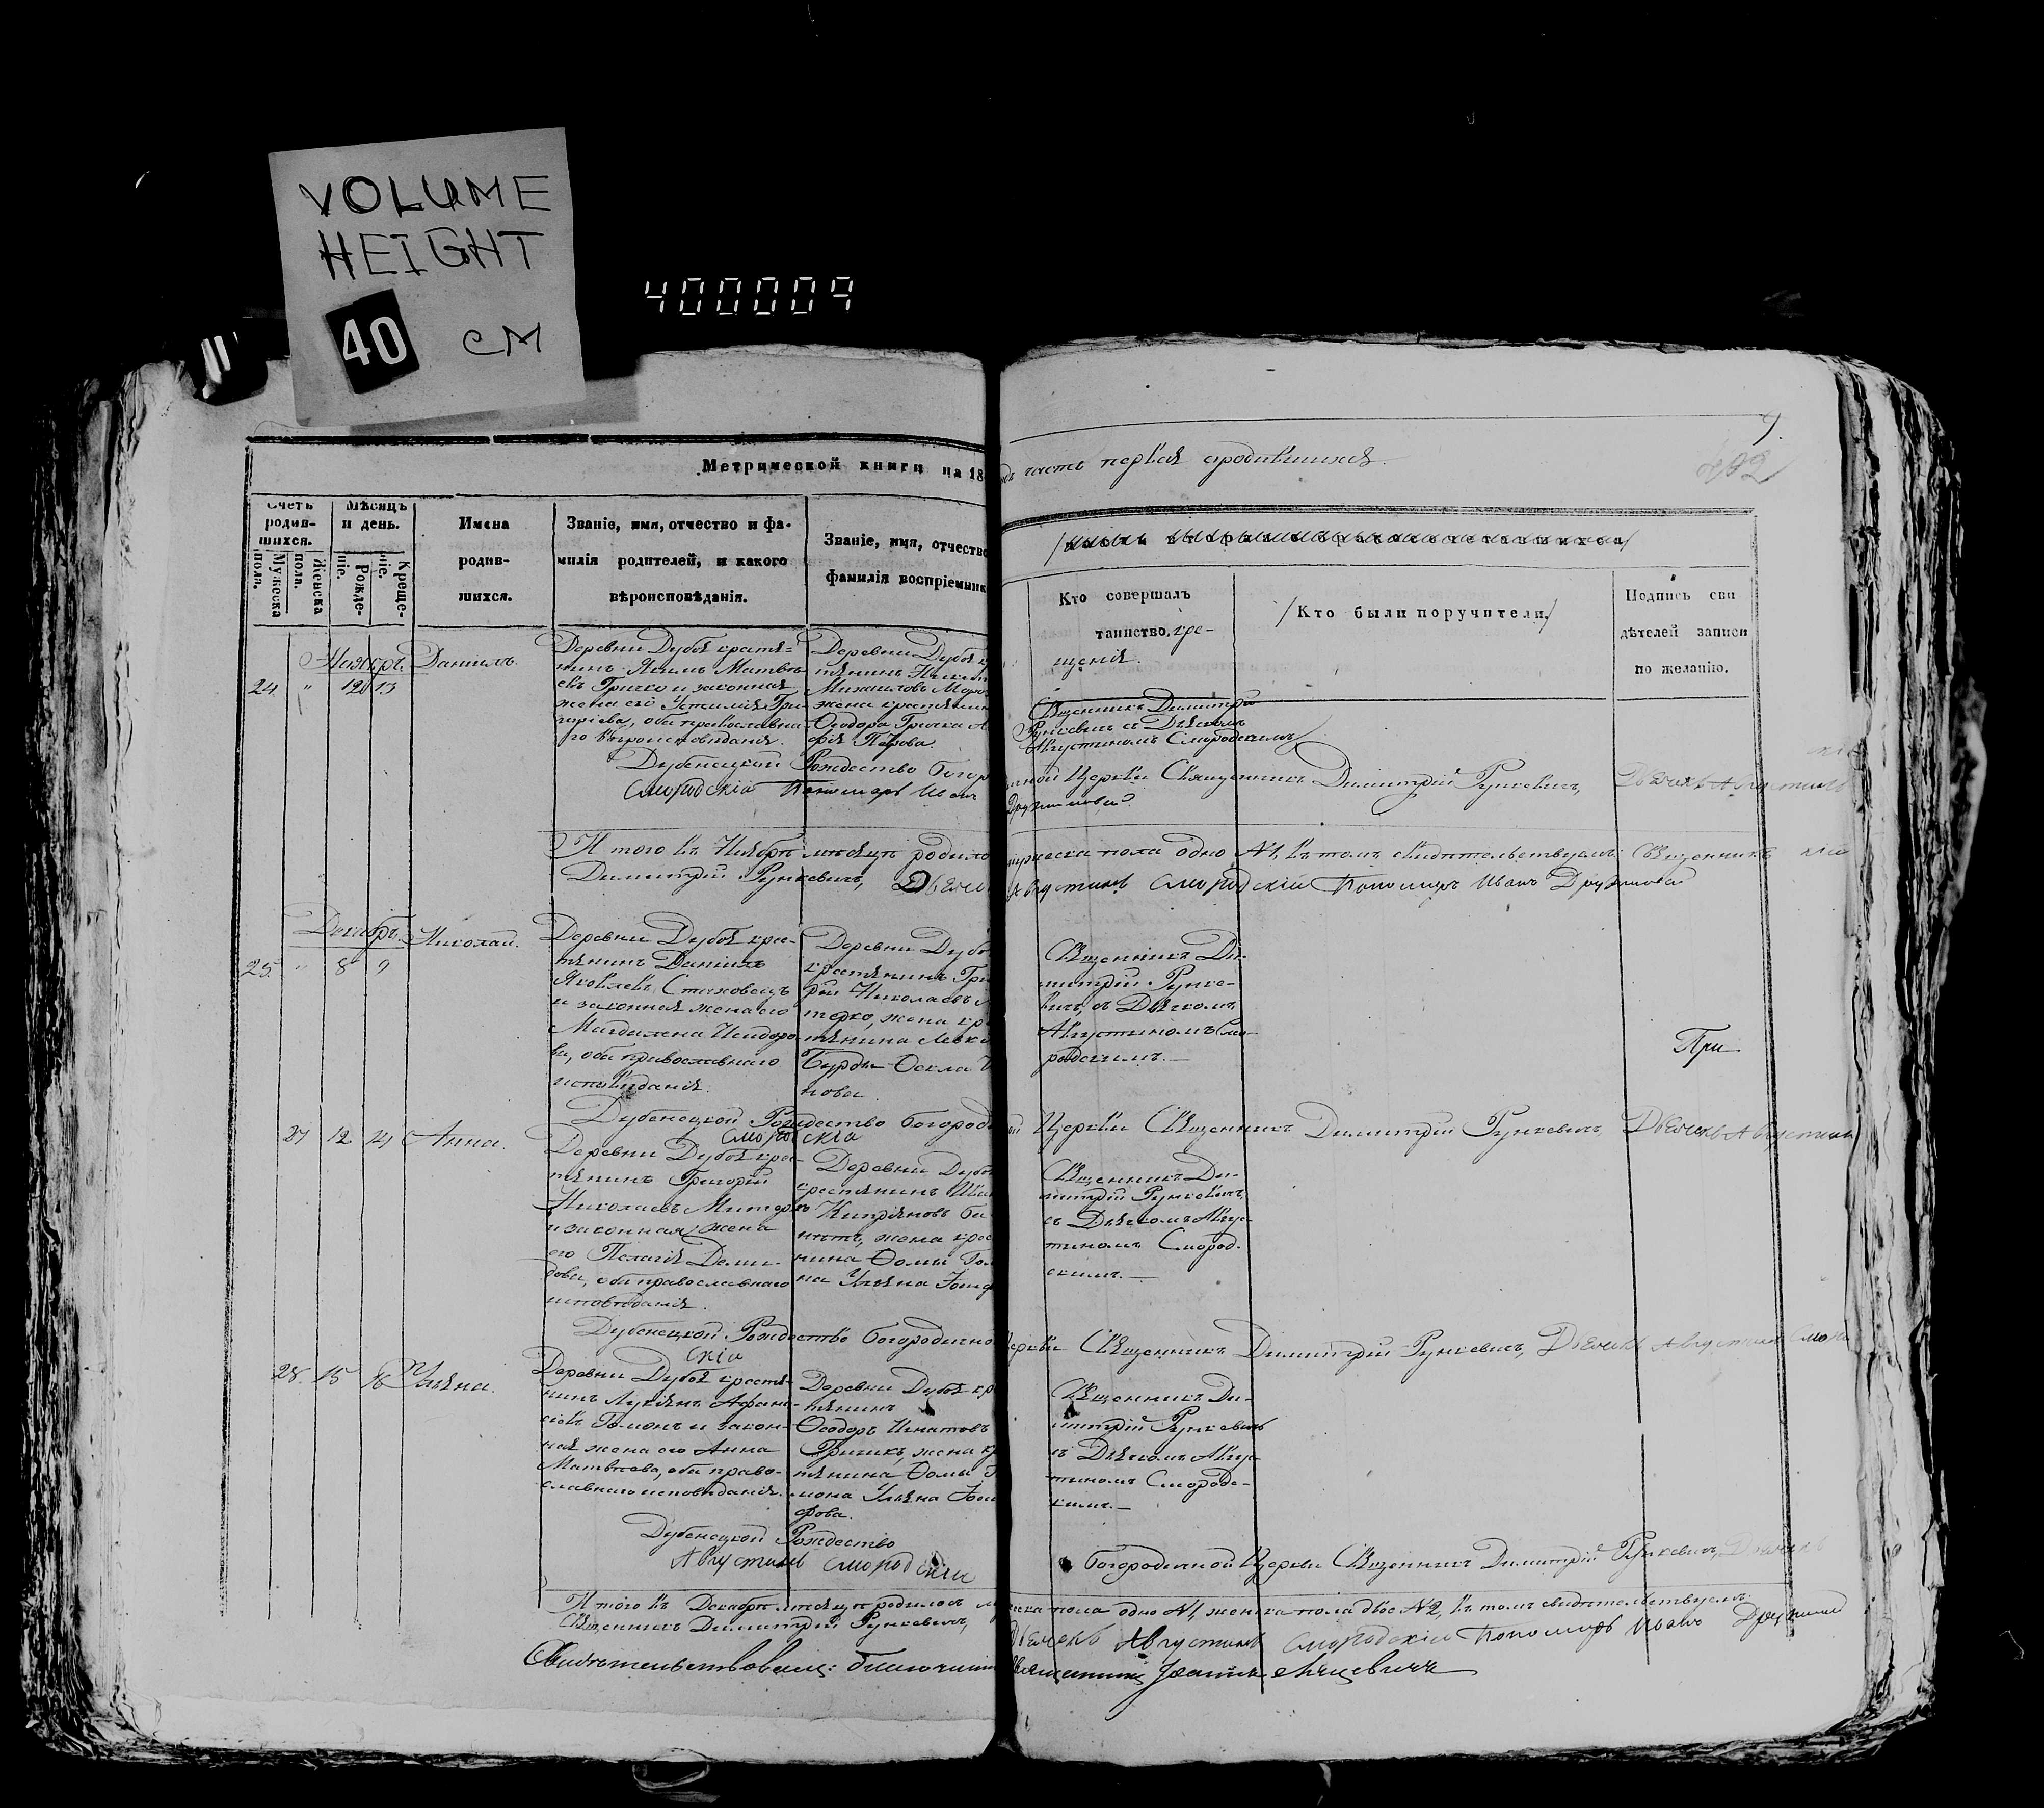 VOLUME
HEIGHT
40 CM
400009
9.
Метрической книги на 18
часть первая о родившихся.
Счетъ родив-шихся.
Мужеска пола.
Женска пола.
Мѣсяцъ и день.
Рожде-ніе.
Креще-ніе.
Имена
родив-
шихся.
Званіе, имя, отчество и фа-
милія родителей, и какого
вѣроисповѣданія.
Званіе, имя, отчество
фамилія воспріемник
Кто совершалъ
таинство кре-
щенія.
/Кто были поручители./
Подпись сви
дѣтелей записи
по желанію.
Ноябрь
24 " 12 13
Даніилъ.
Деревни Дубоя крестя=
нинъ Якимъ Матвѣ
евъ Гричко и законная
жена его Устинія Гри
горіева, оба православна
го вѣроисповѣданія.
Деревни Дубоя кр
тянинъ
Михаиловъ Моро
жена крестянин
Ѳеодора Гричка
фія Петрова.
Священникъ Димитрій
Рункевичъ съ Дьякомъ
Августиномъ Смородскимъ
Дубенецкой Рождество Богор
ичной Церкви Священникъ Димитрій Рункевичъ, Дьячекъ Августинъ
Смородскій Пономарь Иванъ
Итого въ Ноябрѣ мѣсяцѣ родило
мужеска пола одно №1, въ томъ свидѣтельствуемъ: Священникъ
Димитрій Рункевичъ, Дьяче
Августинъ Смородскій Пономарь Иванъ
Декабрь
25 " 8 9
Николай.
Деревни Дубоя кре-
тянинъ Даніилъ
Яковлевъ Стаховецъ
и законная жена его
Магдалена Исидоро
ва, оба православнаго
исповѣданія.
Деревни Дубо
крестянинъ Гри
рій Николаевъ М
терко, жена кр
тянина Левка
Бурды Ѳекла
нова.
Священникъ Ди-
митрій Рунке-
вичъ, съ Дьякомъ
Августиномъ Смо-
родскимъ.
При
Дубенецкой Рождество Богород
Церкви Священникъ Димитрій Рункевичъ, Дьячекъ Августинъ
Смородскій
27 12 14
Анна.
Деревни Дубоя кре-
тянинъ Григорій
Николаевъ Митерко
и законная жена
его Пелагія Деми-
дова, оба православнаго
исповѣданія.
Деревни Дубоя
крестянинъ Ива
Кипріяновъ
жена крес
нина Ѳомы Гом
на Ульяна
Священникъ Ди-
митрій Рункевичъ,
съ Дьякомъ Авгус-
тиномъ Смород-
скимъ.
Дубенецкой Рождество Богородично
Церкви Священникъ Димитрій Рункевичъ, Дьячекъ Августинъ Смород
скій
28 15 16
Ульяна.
Деревни Дубоя крестя-
нинъ Лукіянъ Афана-
сіевъ Гомонъ и закон-
ная жена его Анна
Матвѣева, оба право-
славнаго исповѣданія.
Деревни Дубоя кр
тянинъ
Ѳеодоръ Игнатовъ
Гричикъ, жена к
тянина Ѳомы Г
мона Ульяна
фова.
Священникъ Ди-
митрій Рункевичъ
съ Дьякомъ Авгус-
тиномъ Смородс-
кимъ.
Дубенецкой Рождество
Богородичной Церкви Священникъ Димитрій Рункевичъ, Дьячекъ
Августинъ Смородскій
Итого въ Декабрѣ мѣсяцѣ родилось м
ска пола одно №1, женска пола двое №2, въ томъ свидѣтельствуемъ
Священникъ Димитрій Рункевичъ,
Дьячекъ Августинъ Смородскій Пономарь Иванъ
Свидѣтельствовалъ: благочин
Священникъ Іоаннъ